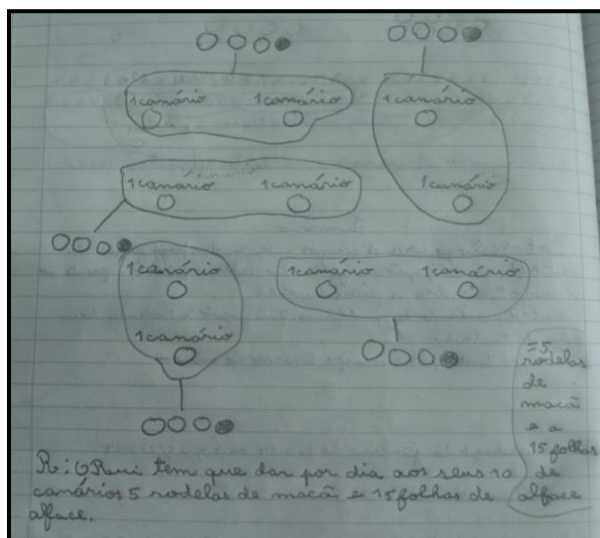 1 canário 1 canário 1 canário
1 canário 1 canário 1 canário
1 canário 1 canário 1 canário
1 canário
= 5
rodelas
de
maçã
e a
15 folhas
de
alface
R: O Rui tem que dar por dia aos seus 10
canários 5 rodelas de maçã e 15 folhas de
alface.